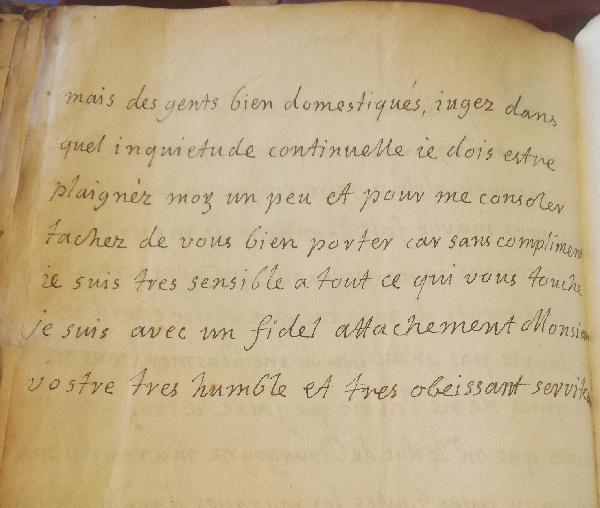 mais des gents bien domestiqués, iugez dans
quel inquietude continuelle ie dois estre
plaignéz moy un peu et pour me consoler
tachez de vous bien porter car sans compliment
ie suis tres sensible a tout ce qui vous touche
je suis avec un fidel attachement Monsieu
vostre tres humble et tres obeissant servite